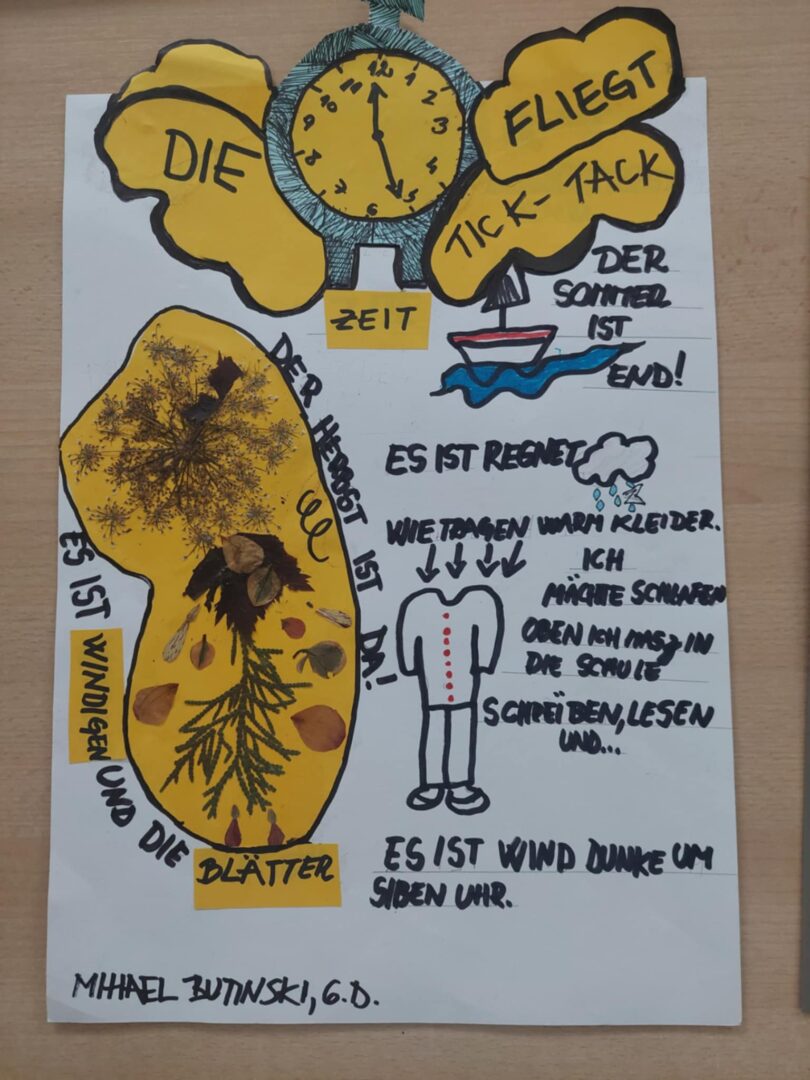 DIE
ZEIT
FLIEGT
TICK-TACK
12
2
3
5
6
7
8
9
10
DER
SOMMER
IST
END!
DER HERBST IST DA!
ES IST WINDIGEN UND DIE
BLÄTTER
ES IST REGNET
WIE TRAGEN WARM KLEIDER.
ICH
MÄCHTE SCHLAFEN
OBEN ICH IN
DIE SCHULE
SCHREIBEN, LESEN
UND...
ES IST WIND DUNKE UM
SIBEN UHR.
MIHAEL BUTINSKI, 6.D.